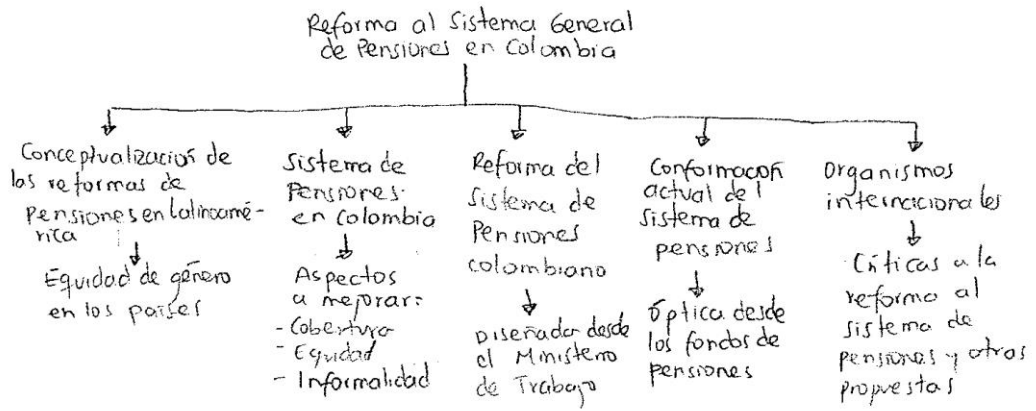 Reforma al Sistema General
de Pensiones en Colombia
Conceptualización de
las reformas de
Pensiones en Latinoamé-
rica
Equidad de género
en los países
Sistema de
Pensiones
en Colombia
Aspectos
a mejorar:
- Cobertura
- Equidad
- Informalidad
Reforma del
Sistema de
Pensiones
colombiano
Diseñada desde
el Ministerio
de Trabajo
Conformación
actual del
sistema de
pensiones
Óptica desde
los fondos de
pensiones
Organismos
internacionales
Críticas a la
reforma al
sistema de
pensiones y otras
propuestas